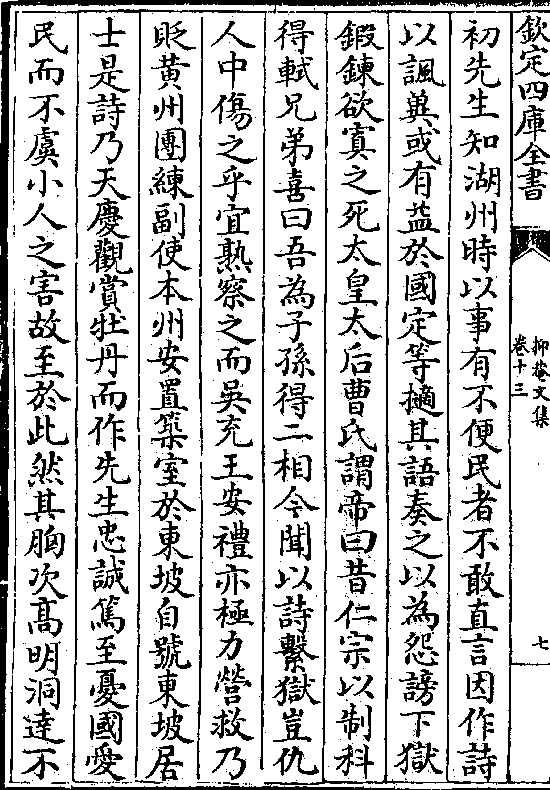 欽定四庫全書
抑菴文集
卷十三
七
初先生知湖州時以事有不便民者不敢直言因作詩
以諷兾或有益於國定等擿其語奏之以為怨謗下獄
鍛鍊欲寘之死太皇太后曹氏謂帝曰昔仁宗以制科
得軾兄弟喜曰吾為子孫得二相今聞以詩繫獄豈仇
人中傷之乎宜熟察之而吳充王安禮亦極力營救乃
貶黄州團練副使本州安置築室於東坡自號東坡居
士是詩乃天慶觀賞牡丹而作先生忠誠篤至憂國愛
民而不虞小人之害故至於此然其胸次髙明洞達不